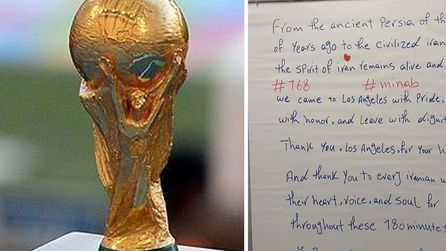 From the ancient Persia of th
of Years ago to the civilized iran
the spirit of iran remains alive and
#168 #minab
we came to Los Angeles with Pride,
with honor, and Leave with dignit
Thank you, Los Angeles, for your h
And thank you to every iranian w
their heart, voice, and soul for
throughout these 180 minutes